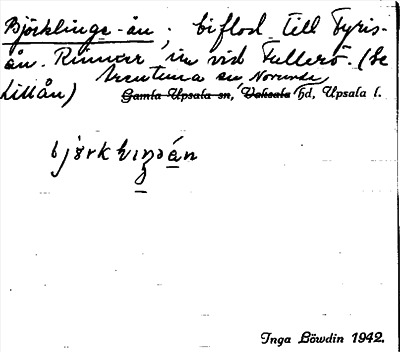 Björklinge-ån. biflod till Fyris-
ån. Rinner in vid Fullerö. (Se
Lillån)
Ärentuna sn Norunda
Gamla Upsala sn, Vaksala hd, Upsala l.
Inga Löwdin 1942.